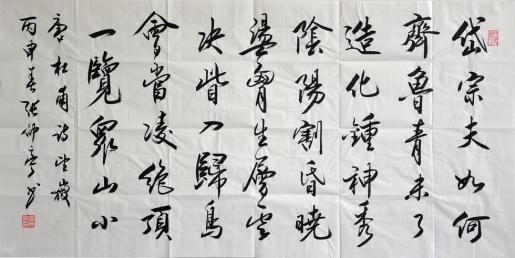 岱宗夫如何
齊魯青未了
造化鍾神秀
陰陽割昏曉
盪胷生層雲
决眥入歸鳥
會當凌絶頂
一覽衆山小
唐杜甫詩望嶽
丙申春張仰亭书